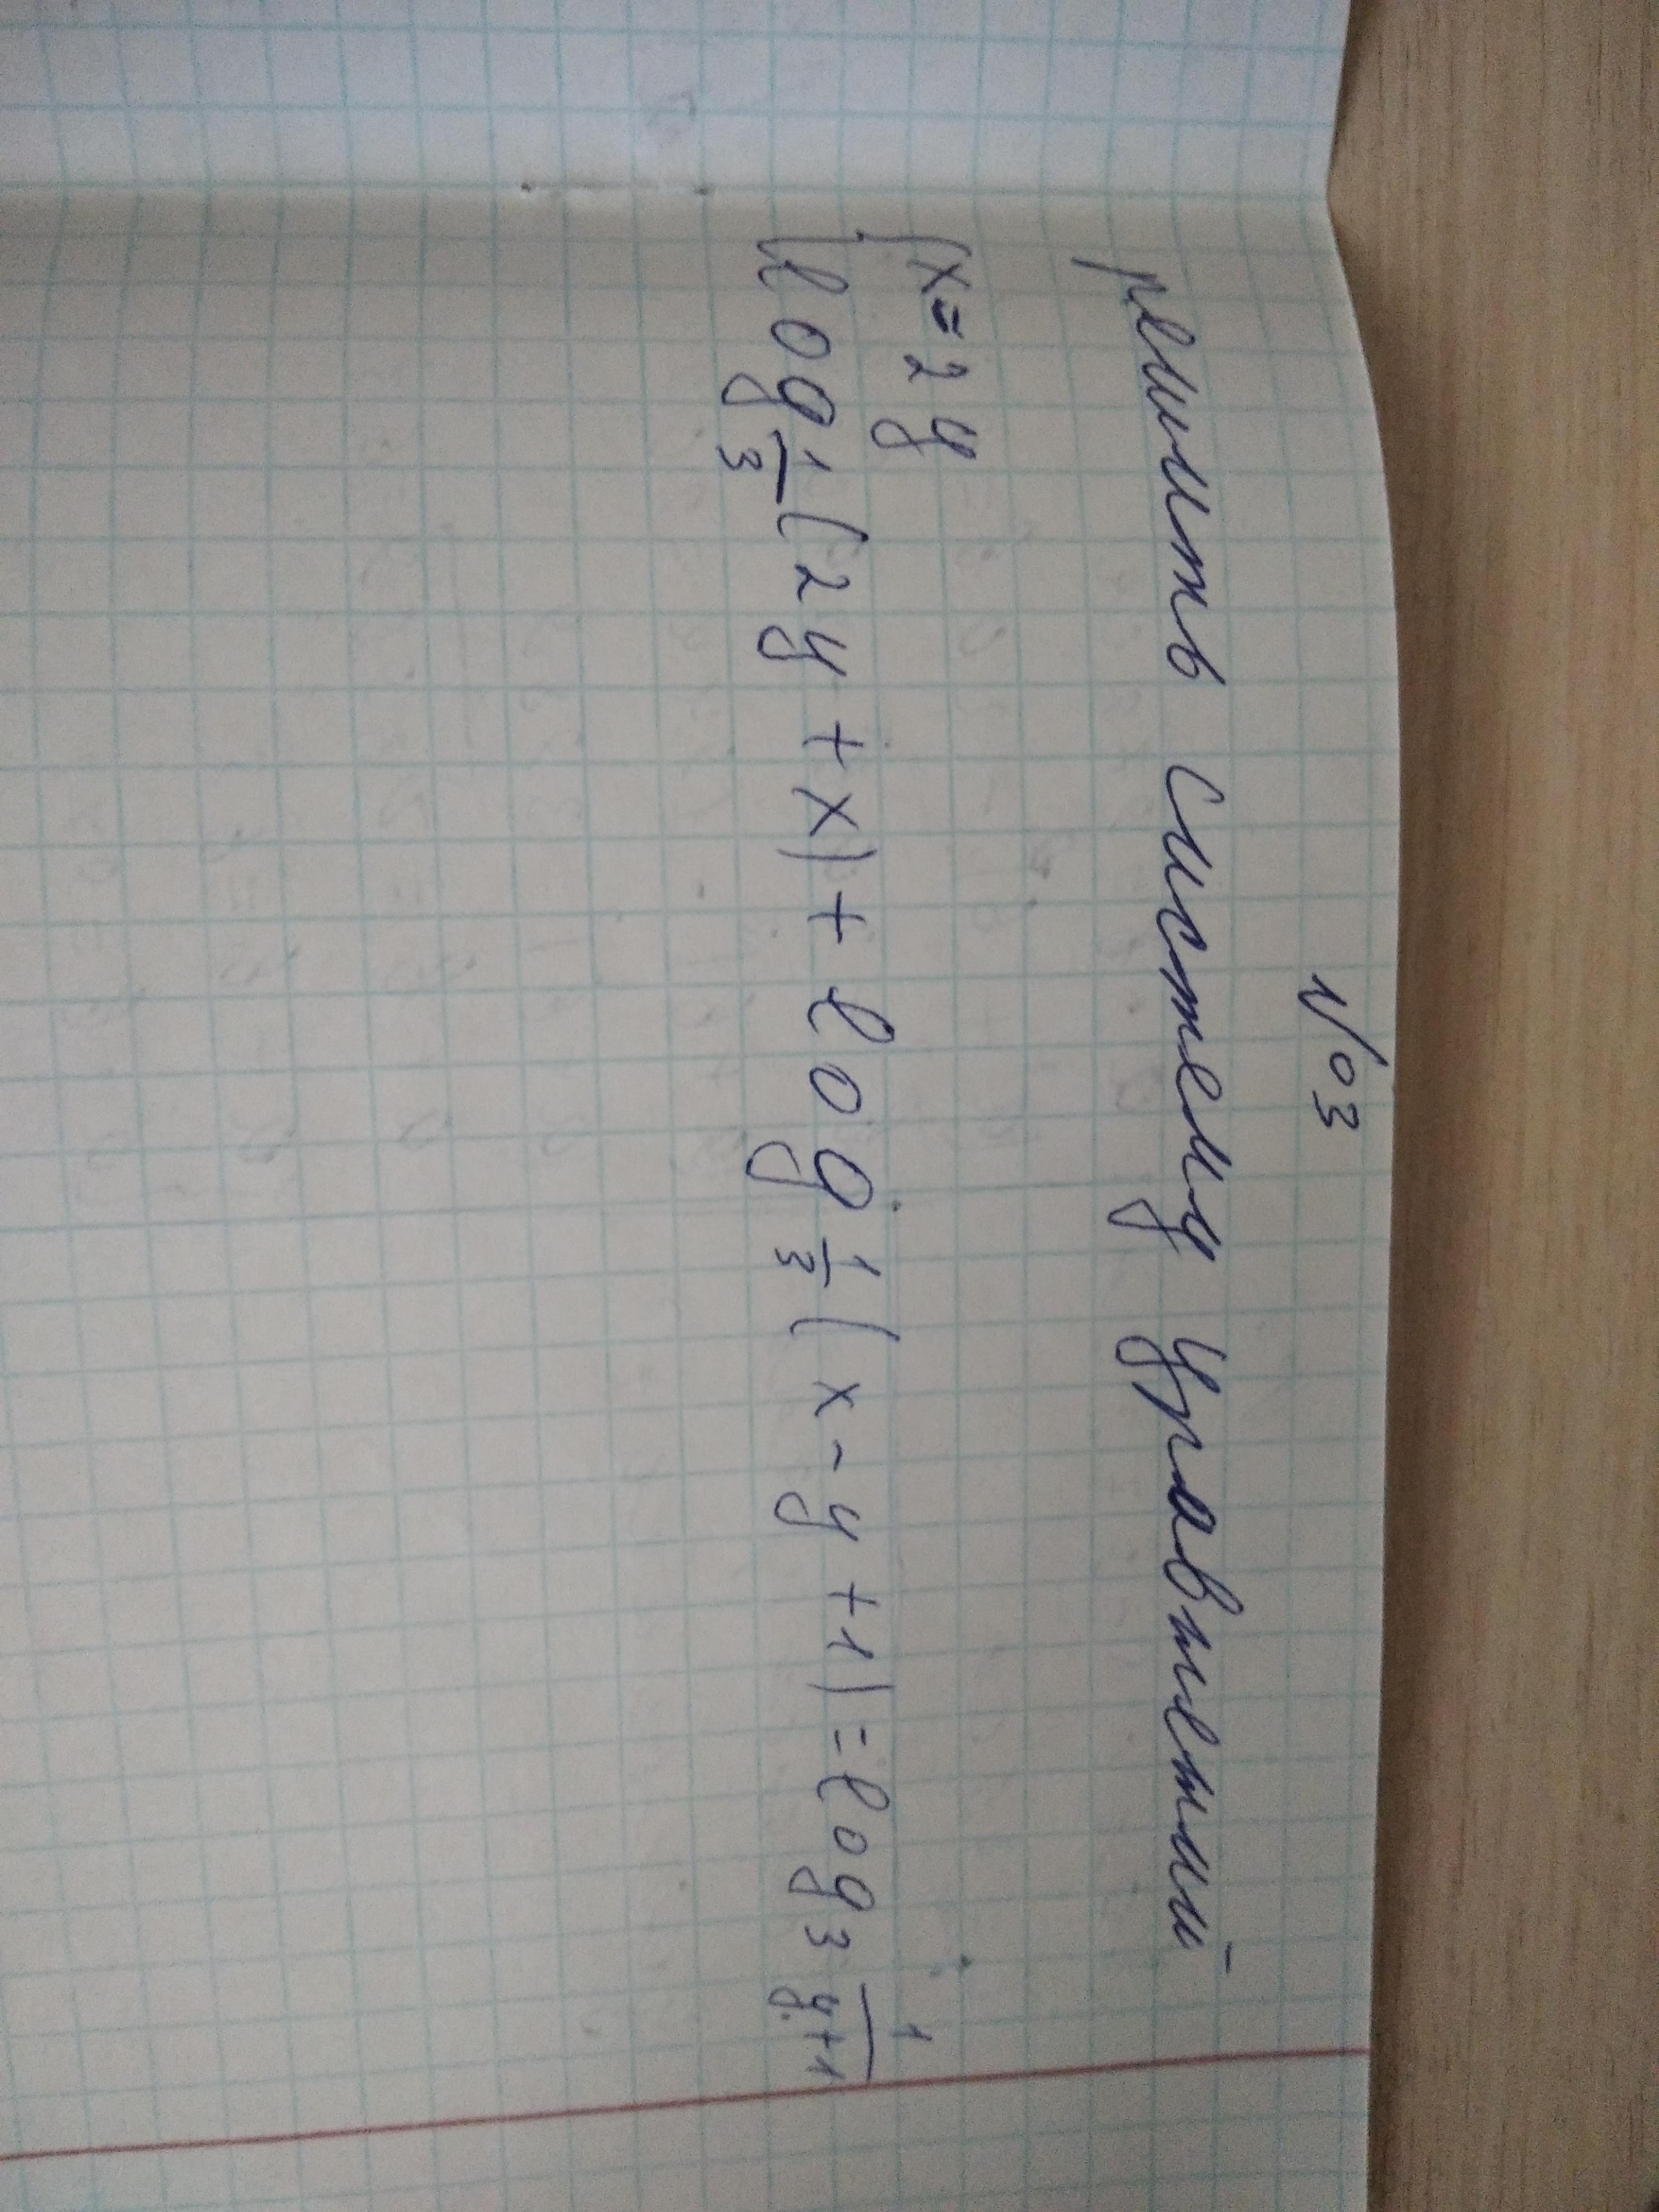 №3
решить систему уравнений
{x=2y
log 1/3 (2y+x)+log 1/3 (x-y+1)=log3 1/y+1